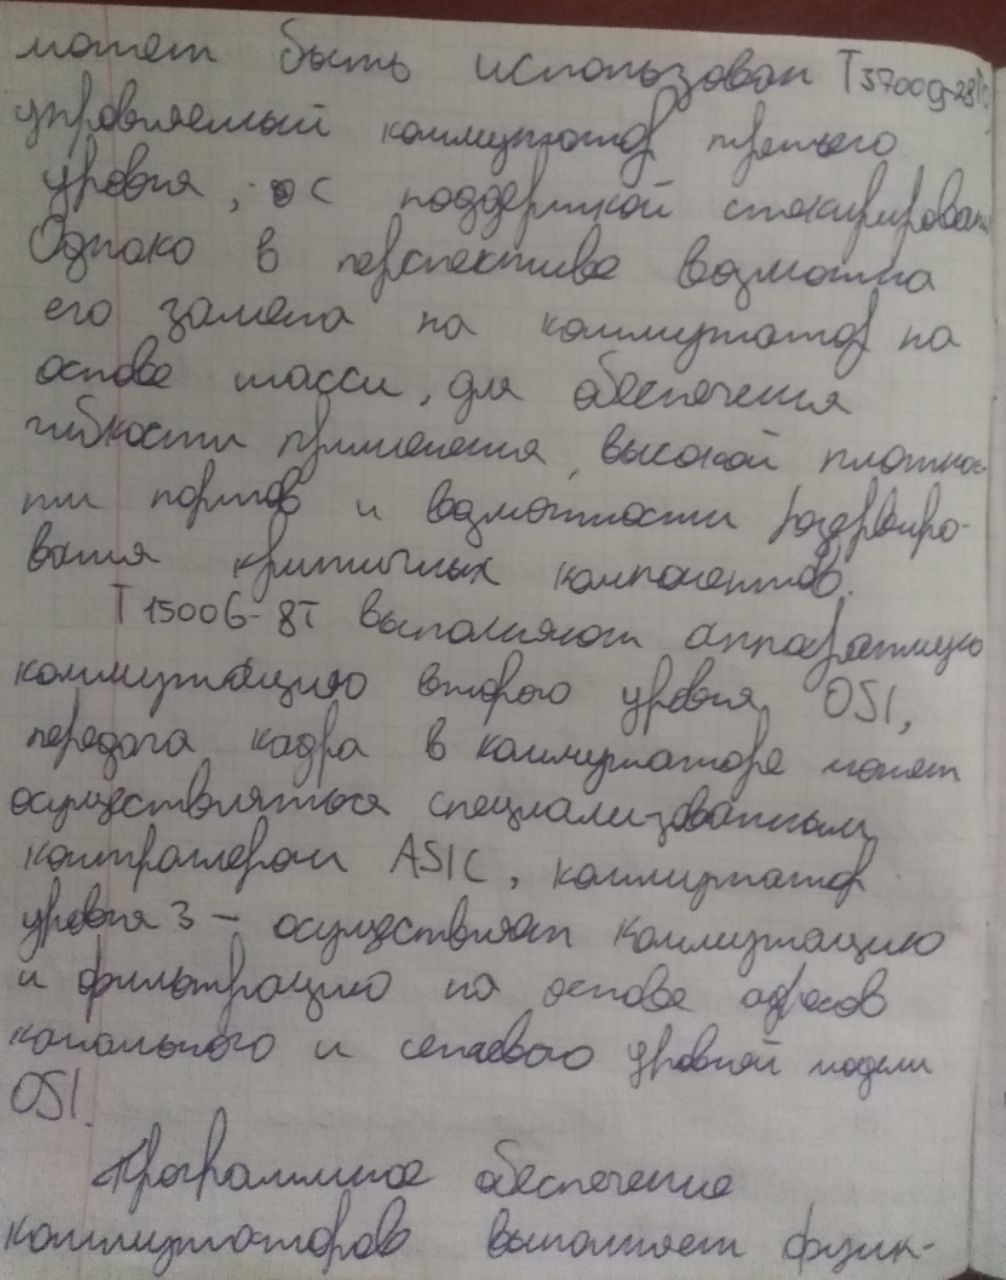 может быть использован T3700G-28TQ,
управляемый коммутатор третьего
уровня, с поддержкой стекирован
Однако в перспективе возможна
его замена на коммутатор на
основе шасси, для обеспечения
гибкости применения, высокой плотнос-
ти портов и возможности резервиро-
вания критичных компонентов.
T1500G-8T выполняют аппаратную
коммутацию второго уровня OSI,
передача кадра в коммутаторе может
осуществляться специализованным
контроллером ASIC, коммутатор
уровня 3 – осуществляет коммутацию
и фильтрацию на основе адресов
канального и сетевого уровней модели
OSI.
Программное обеспечение
коммутаторов выполняет функ-